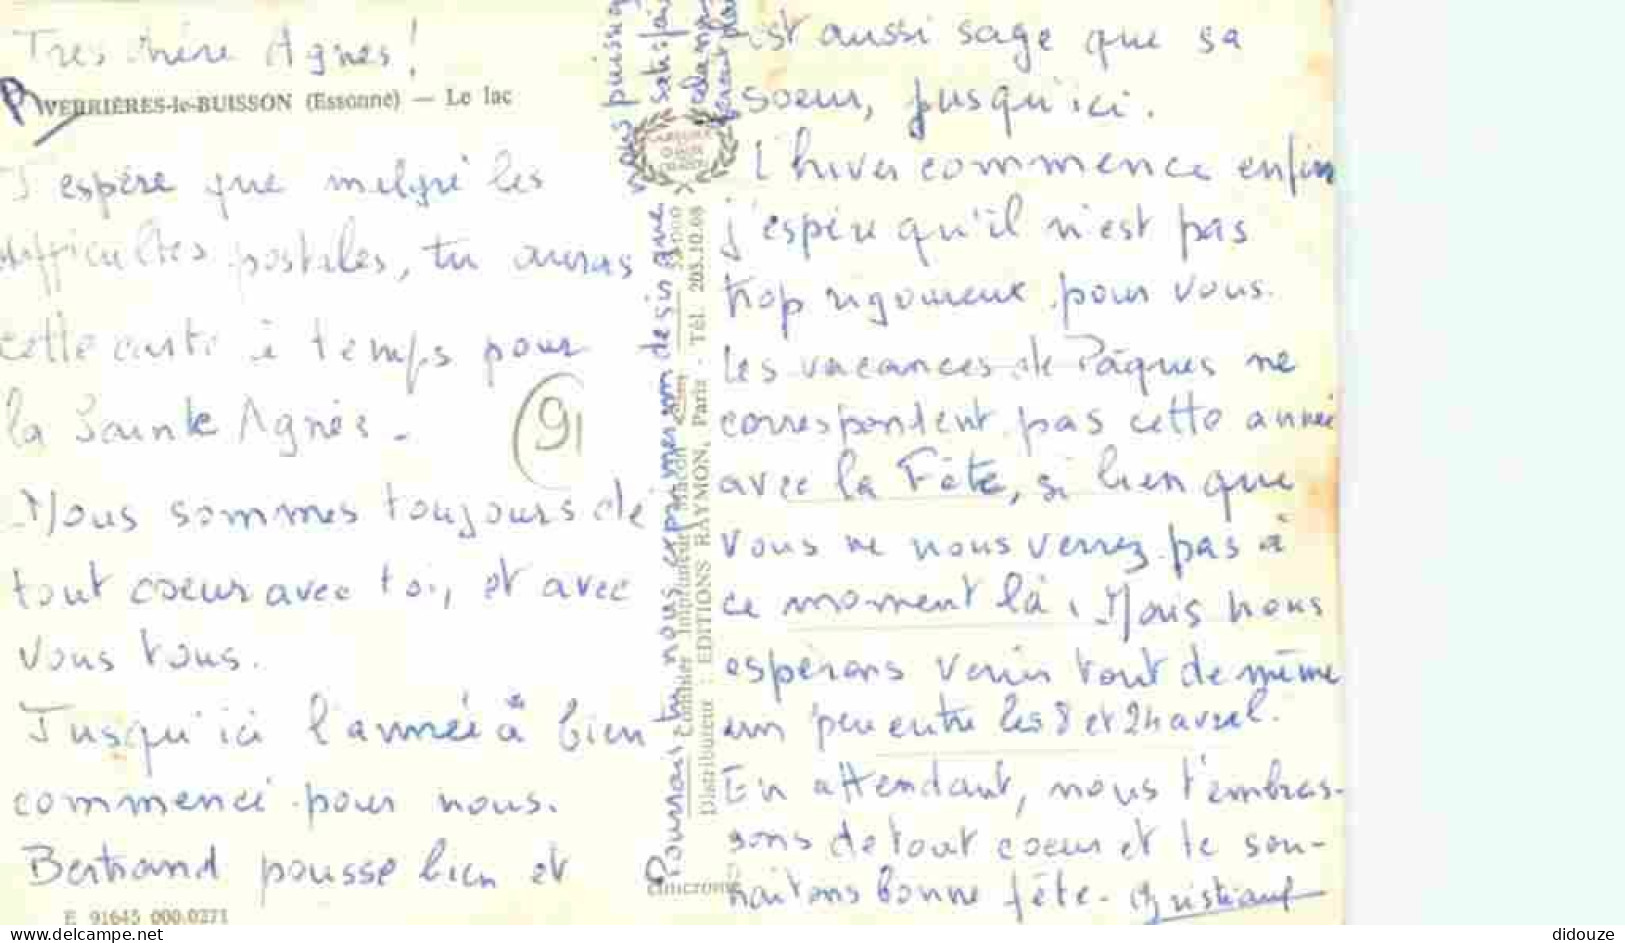 Très chère Agnès!
VERRIÈRES-le-BUISSON (Essonne) — Le lac
J'espère que malgré les
difficultés postales, tu auras
cette carte à temps pour
la Sainte Agnès.
91
Nous sommes toujours de
tout coeur avec toi, et avec
vous tous.
Jusqu'ici l'année a bien
commencé pour nous.
Bertrand pousse bien et
E 91645 000.0271
est aussi sage que sa
soeur, jusqu'ici.
L'hiver commence enfin
j'espère qu'il n'est pas
trop rigoureux pour vous.
Les vacances de Pâques ne
correspondent pas cette année
avec la Fête, si bien que
vous ne nous verrez pas à
ce moment là. Mais nous
espérons venir tout de même
un peu entre les 8 et 24 avril.
En attendant, nous t'embras-
sons de tout coeur et te sou-
haitons bonne fête - Christiane
Pourrais-tu nous exprimer un désir que
nous puis
satisfai
Distributeur : EDITIONS RAYMON, Paris - Tél. 205.10.08
didouze
delcampe.net